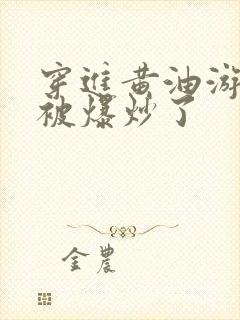 穿进黄油游
被爆炒了
金农